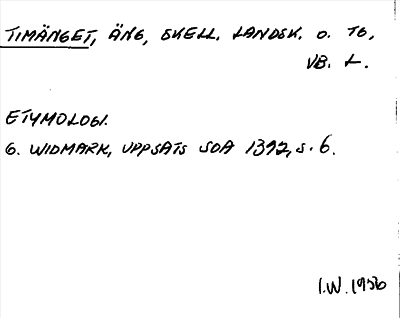 TIMÄNGET, ÄNG, SKELL. LANDSK. O. TG,
VB. L.
ETYMOLOGI.
G. WIDMARK, UPPSATS SOA 1392, S. 6.
I.W. 1956